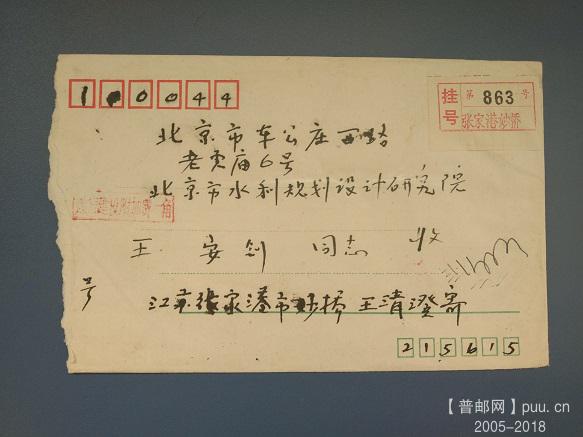 100044
挂号 第 863 号
张家港妙桥
北京市车公庄西路
老虎庙6号
北京市水利规划设计研究院
附加费一角
王安剑 同志 收
号
江苏张家港市妙桥 王清澄寄
215615
【普邮网】puu.cn
2005-2018